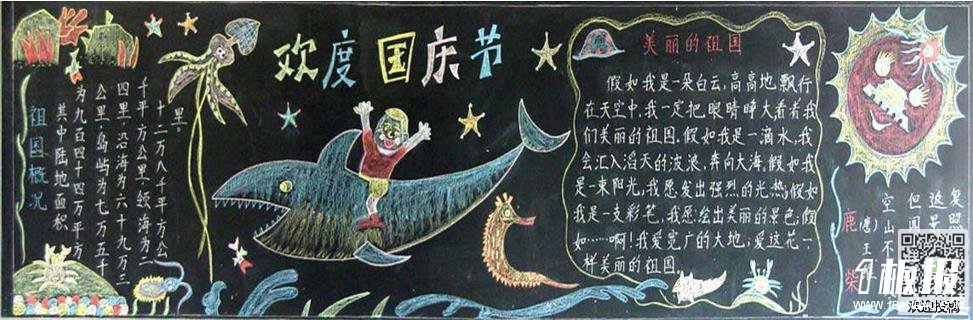 欢度国庆节
祖国概况
其中陆地面积
为九百四十四万平方
公里,岛屿为七万五千
四里,沿海为六十九万三
千平方公里,领海为二
十二万八千平方公
里。
美丽的祖国
假如我是一朵白云,高高地飘行
在天空中,我一定把眼睛睁大看看我
们美丽的祖国。假如我是一滴水,我
会汇入滔天的波浪,奔向大海。假如我
是一束阳光,我愿发出强烈的光热;假如
我是一支彩笔,我愿绘出美丽的景色;假
如……啊!我爱宽广的大地,爱这花一
样美丽的祖国。
鹿柴
(唐)王
空山不
但闻
返景
复照
板报
欢迎投稿